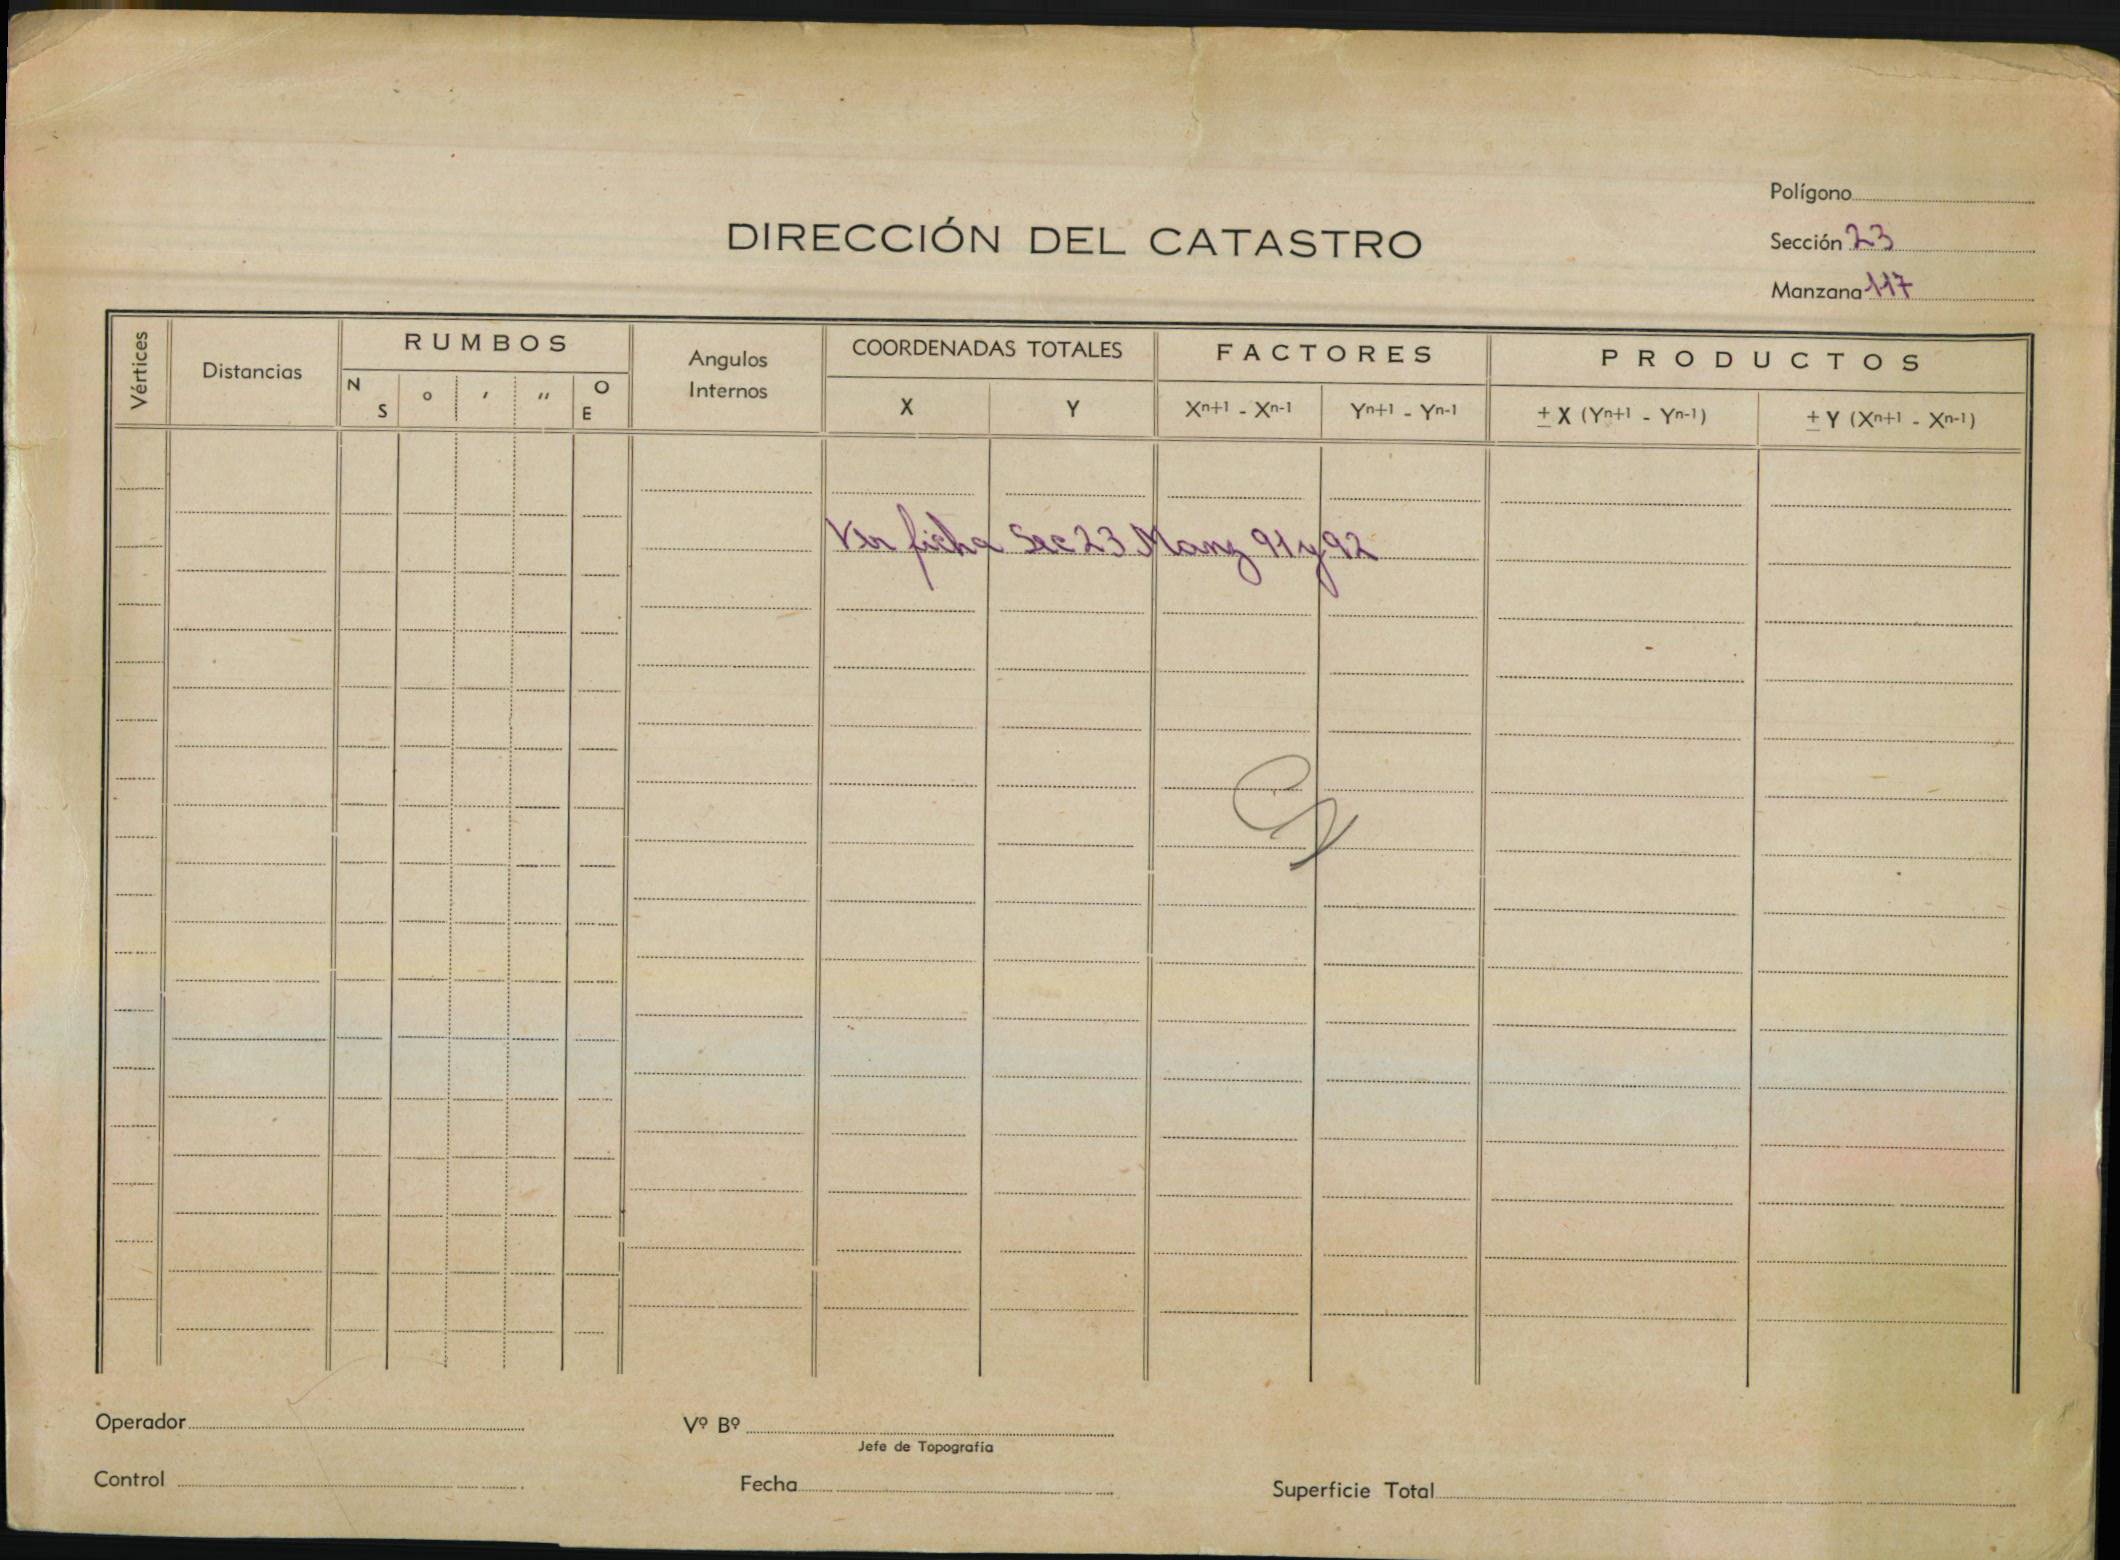 Polígono
DIRECCIÓN DEL CATASTRO
Sección 23
Manzana 117
Vértices
Distancias
RUMBOS
N S ° ' " O E
Angulos
Internos
COORDENADAS TOTALES
X Y
FACTORES
Xn+1 - Xn-1 Yn+1 - Yn-1
PRODUCTOS
± X (Yn+1 - Yn-1) ± Y (Xn+1 - Xn-1)
Ver ficha Sec 23 Manz 91 y 92
Operador
Vº Bº
Jefe de Topografía
Control
Fecha
Superficie Total